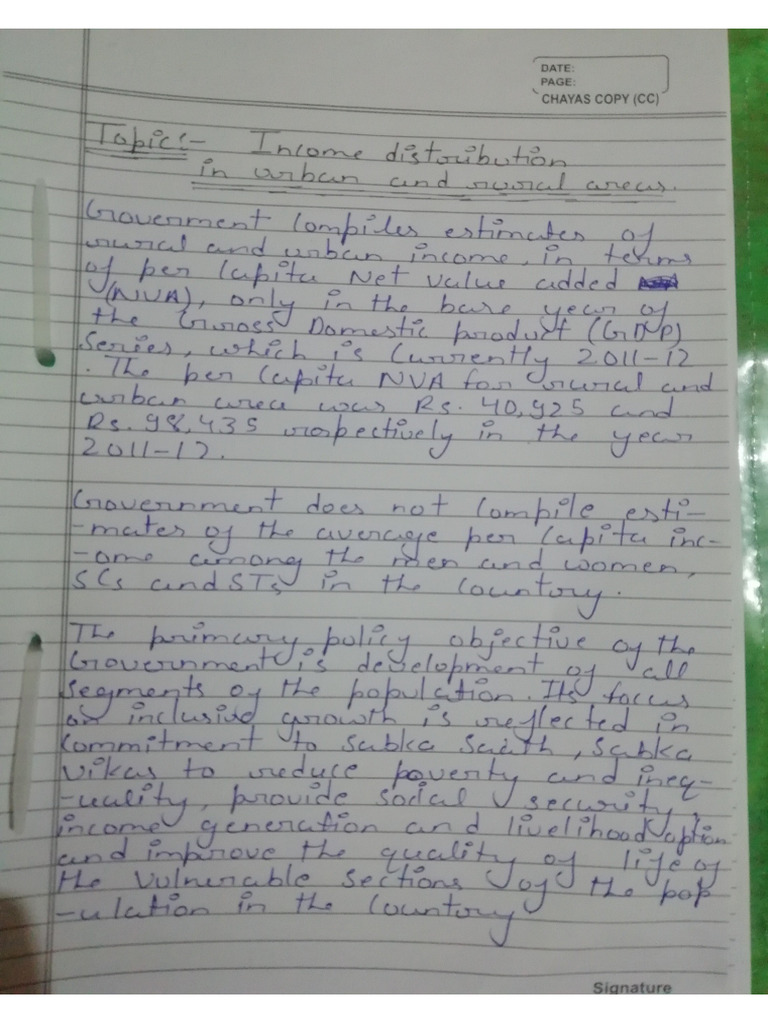 DATE:
PAGE:
CHAYAS COPY (CC)
Topic:- Income distribution
in urban and rural areas.
Government compiles estimates of
rural and urban income, in terms
of per capita Net value added
(NVA), only in the base year of
the Gross Domestic product (GDP)
Series, which is currently 2011-12
. The per capita NVA for rural and
urban area was Rs. 40,925 and
Rs. 98,435 respectively in the year
2011-12.
Government does not compile esti-
-mates of the average per capita inc-
-ome among the men and women,
SCs and STs in the country.
The primary policy objective of the
Government is development of all
segments of the population. Its focus
on inclusive growth is reflected in
commitment to Sabka Saath, Sabka
Vikas to reduce poverty and ineq-
-uality, provide social security,
income generation and livelihood option
and improve the quality of life of
the vulnerable sections of the pop
-ulation in the country
Signature